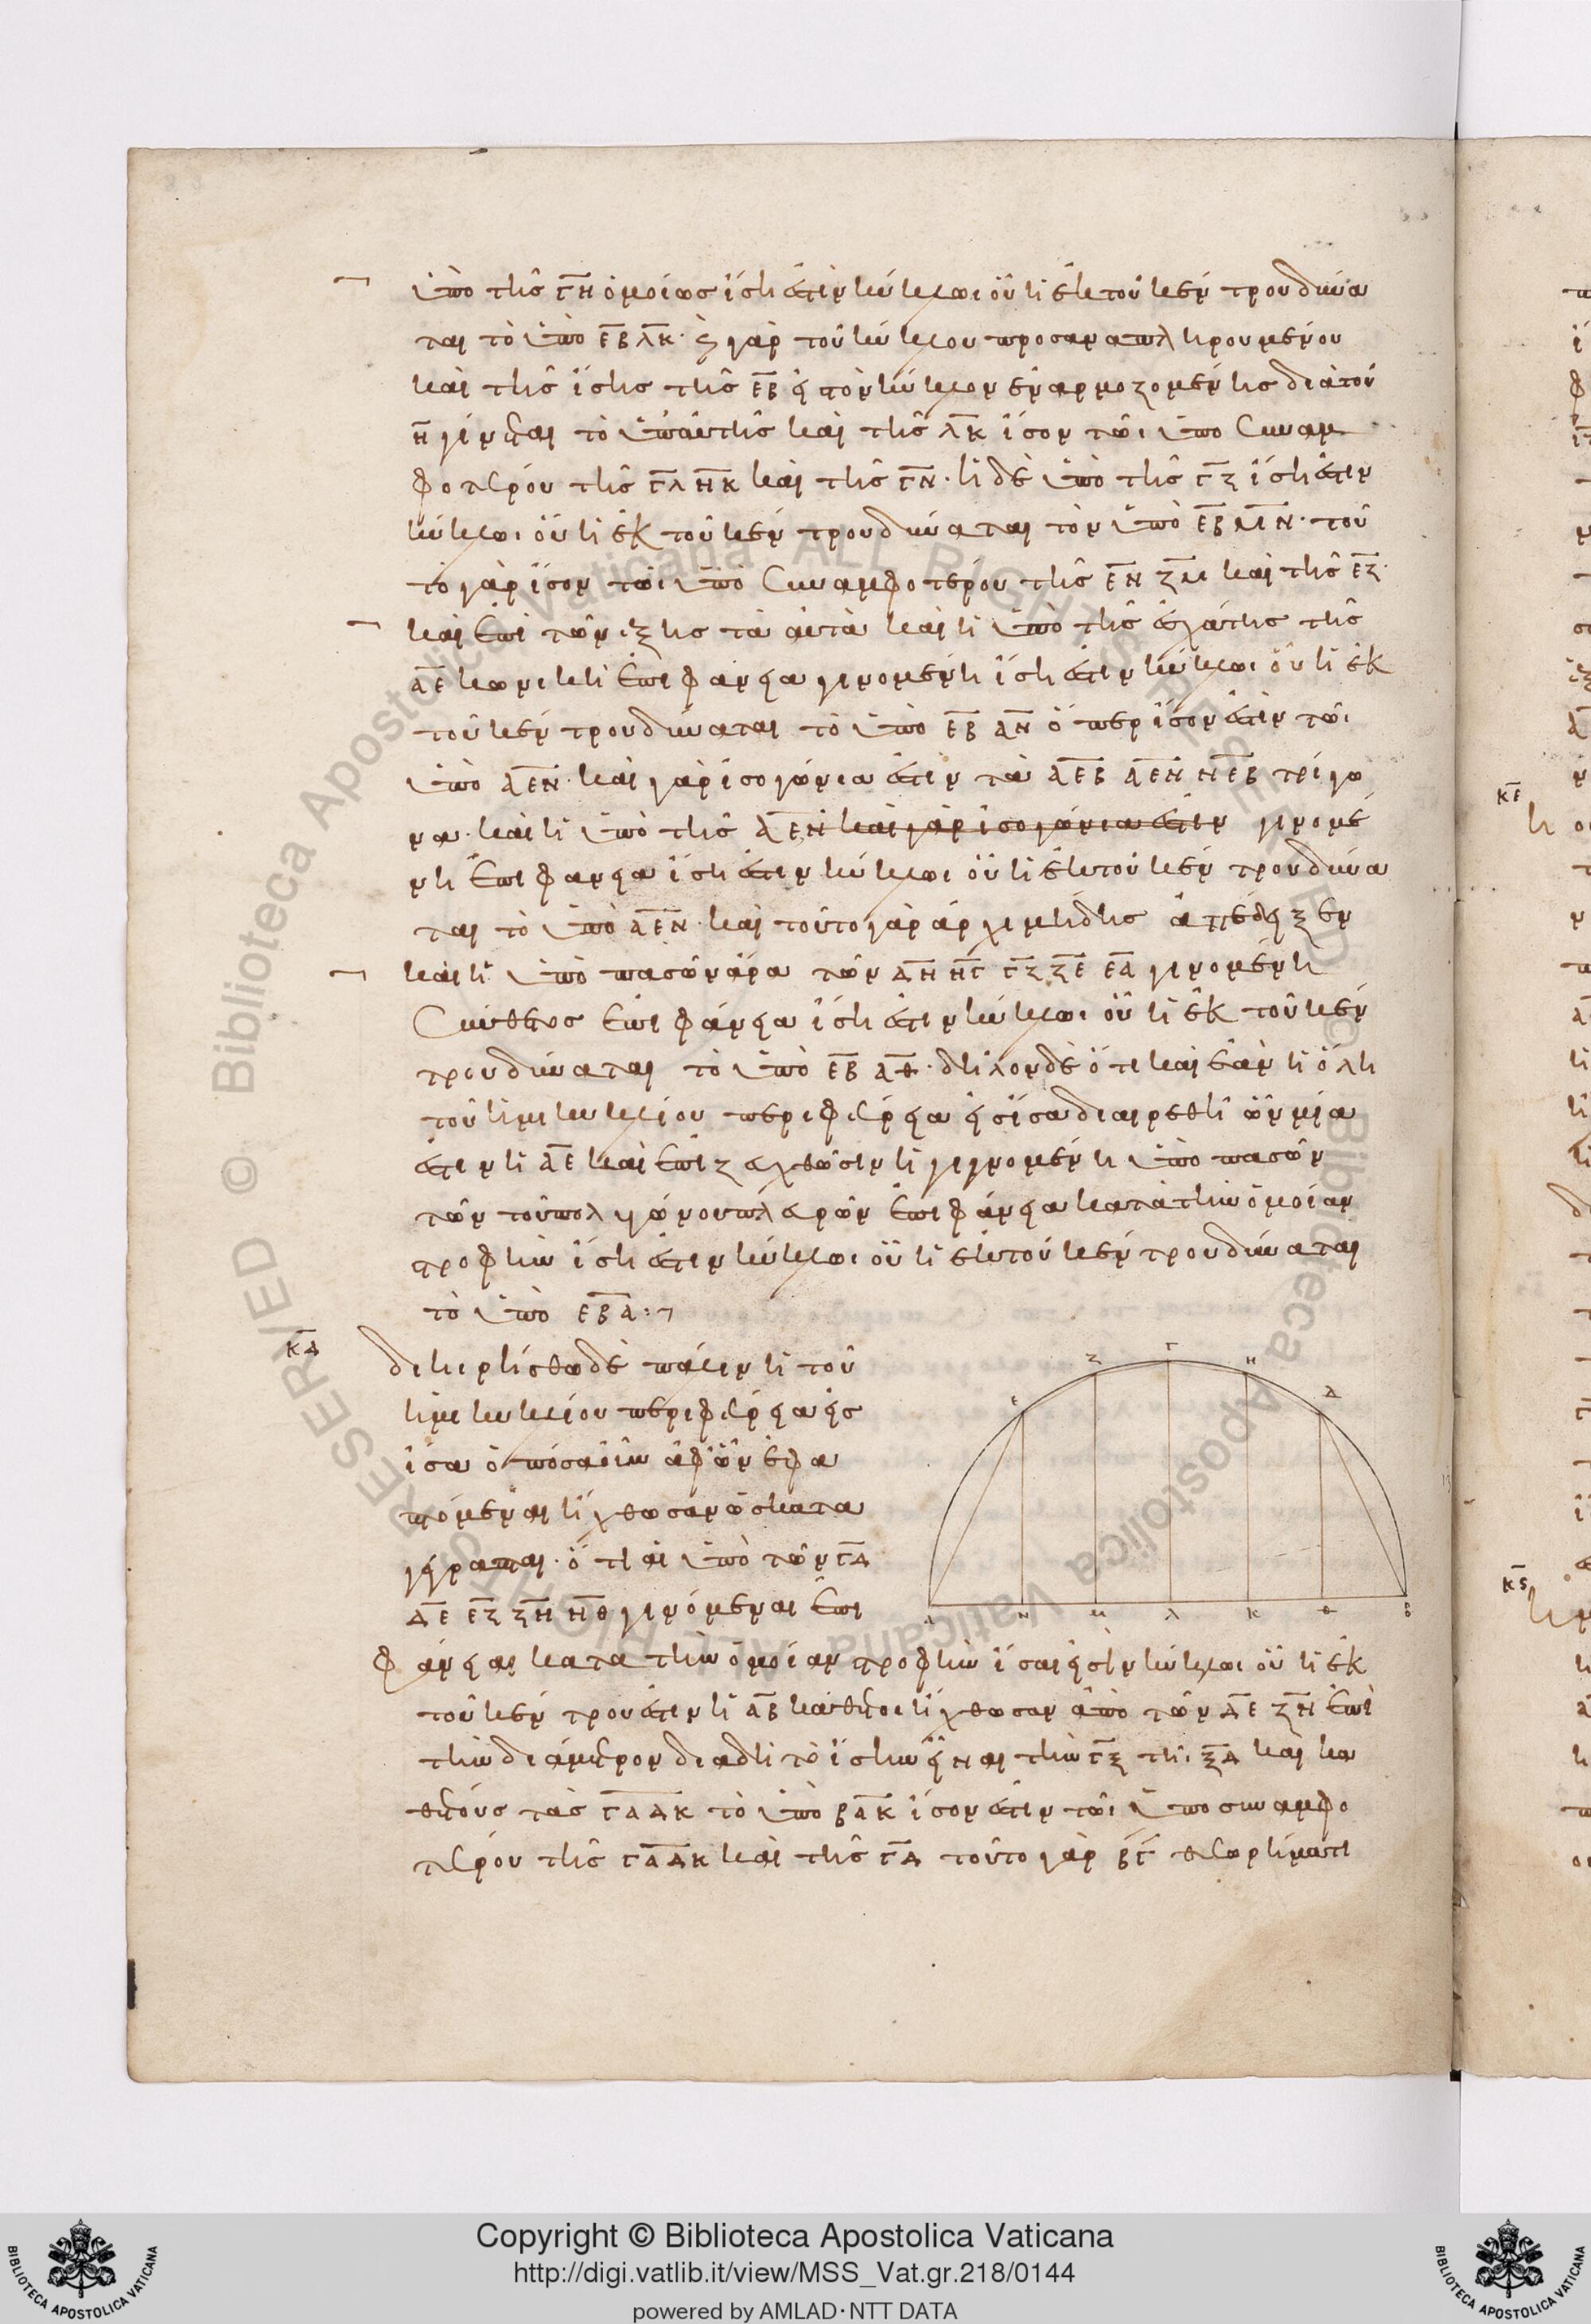 ὑπὸ τῆς ΓΗ ὁμοίως ἴση ἐστὶν κύκλωι οὗ ἡ ἐκ τοῦ κέντρου δύνα
ται τὸ ὑπὸ ΕΒ ΛΚ· γὰρ τοῦ κύκλου προσαναπληρουμένου
καὶ τῆς ἴσης τῆς ΕΒ εἰ τὸν κύκλον ἐναρμοζομένης διὰ τοῦ
Η γίνεται τὸ ὑπ' αὐτῆς καὶ τῆς ΛΚ ἴσον τῶι ὑπο συναμ
φοτέρου τῆς ΓΛ ΗΚ καὶ τῆς ΓΝ· ἡ δὲ ὑπὸ τῆς ΓΖ ἴση ἐστιν
κύκλωι οὗ ἡ ἐκ τοῦ κέντρου δύναται τὸν ὑπὸ ΕΒ ΜΝ· τοῦ
το γὰρ ἴσον τῶι ὑπὸ συναμφοτέρου τῆς ΕΝ ΖΜ καὶ τῆς ΕΖ·
καὶ ἐπὶ τῶν ἑξῆς τὰ αὐτὰ καὶ ἡ ὑπὸ τῆς ἐσχάτης τῆς
ΑΕ κωνικὴ ἐπιφάνεια γινομένη ἴση ἐστιν κύκλωι οὗ ἡ ἐκ
τοῦ κέντρου δύναται τὸ ὑπὸ ΕΒ ΑΝ ὅπερ ἴσον ἐστὶν τῶι
ὑπὸ ΑΕΝ· καὶ γὰρ ἰσογώνια ἐστιν τὰ ΑΕΒ ΑΕΝ ΝΕΒ τρίγω
να· καὶ ἡ ὑπὸ τῆς ΑΕΝ καὶ γὰρ ἰσογώνια ἐστιν γινομέ
νη ἐπιφανεια ἴση ἐστιν κύκλωι οὗ ἡ ἐκ τοῦ κέντρου δύνα
ται τὸ ὑπὸ ΑΕΝ· καὶ τοῦτο γὰρ ἀρχιμήδης ἀπέδειξεν
καὶ ἡ ὑπὸ πασῶν ἄρα τῶν ΔΗ ΗΓ ΓΖ ΖΕ ΕΑ γινομένη
σύνθετος ἐπιφάνεια ἴση ἐστιν κύκλωι οὗ ἡ ἐκ τοῦ κέν
τρου δύναται τὸ ὑπὸ ΕΒ ΑΘ· δῆλον δὲ ὅτι καὶ ἐὰν ἡ ὅλη
τοῦ ἡμικυκλίου περιφέρεια εἰς ἴσα διαιρεθῆ ὧν μία
ἐστιν ἡ ΑΕ καὶ ἐπιζευχθῶσιν ἡ γιγνομένη ὑπὸ πασῶν
τῶν τοῦ πολυγώνου πλευρῶν ἐπιφάνεια κατὰ τὴν ὁμοίαν
στροφὴν ἴση ἐστιν κύκλωι οὗ ἡ ἐκ τοῦ κέντρου δύναται
τὸ ὑπὸ ΕΒΑ:
ΚΔ
διηιρήσθω δὲ πάλιν ἡ τοῦ
ἡμικυκλίου περιφέρεια εἰς
ἴσα ὁποσαοῦν ἀφ' ὧν ἐφα
πτόμεναι ἤχθωσαν ὡς κατα
γέγραπται· ὅτι αἱ ὑπὸ τῶν ΓΔ
ΔΕ ΕΖ ΖΗ ΗΘ γινόμεναι ἐπι
φάνειαι κατα τὴν ὁμοίαν στροφὴν ἴσαι εἰσὶν κύκλωι οὗ ἡ ἐκ
τοῦ κέντρου ἐστιν ἡ ΑΒ κάθετοι ἤχθωσαν ἀπὸ τῶν ΔΕ ΖΗ ἐπὶ
τὴν διάμετρον διαδὴ τὸ ἴσην εἶναι τὴν ΓΞ τῆι ΞΔ καὶ κα
θέτους τὰς ΓΑ ΔΚ τὸ ὑπὸ ΒΑΚ ἴσον ἐστιν τῶι ὑπο συναμφο
τέρου τῆς ΓΑ ΔΚ καὶ τῆς ΓΔ τοῦτο γὰρ θεωρήματι
Ε Ζ Γ Η Δ
Α Ν Μ Λ Κ Θ Β
ΚΕ
ΚϚ
Copyright © Biblioteca Apostolica Vaticana
http://digi.vatlib.it/view/MSS_Vat.gr.218/0144
powered by AMLAD·NTT DATA
BIBLIOTECA APOSTOLICA VATICANA
BIBLIOTECA APOSTOLICA VATICANA
© Biblioteca Apostolica Vaticana ALL RIGHTS RESERVED